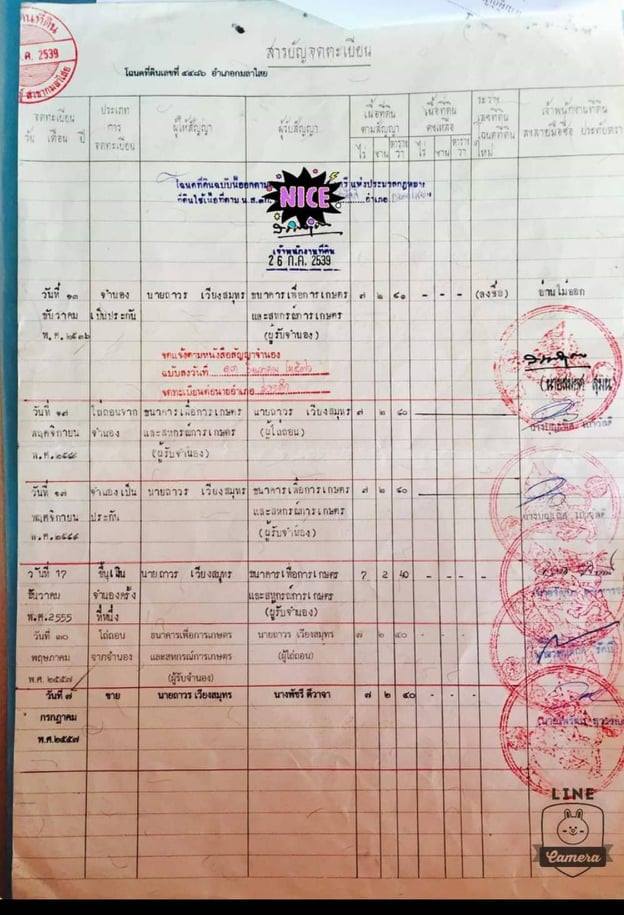 สารบัญจดทะเบียน
โฉนดที่ดินเลขที่ ๔๔๘๖ อำเภอกมลาไสย
ค. 2539
สาขากมลาไสย
จดทะเบียน ประเภท ผู้ให้สัญญา ผู้รับสัญญา เนื้อที่ดิน เนื้อที่ดิน ระวาง เจ้าพนักงานที่ดิน
วัน เดือน ปี การ ตามสัญญา คงเหลือ เลขที่ดิน ลงลายมือชื่อ ประทับตรา
จดทะเบียน ไร่ งาน ตาราง ไร่ งาน ตาราง โฉนดที่ดิน
วา วา ใหม่
โฉนดที่ดินฉบับนี้ออกตาม แห่งประมวลกฎหมาย
ที่ดินใช้เนื้อที่ตาม น.ส.๓ก. อำเภอ
NICE
เจ้าพนักงานที่ดิน
26 ก.ค. 2539
วันที่ ๑๓ จำนอง นายถาวร เวียงสมุทร ธนาคารเพื่อการเกษตร ๗ ๒ ๔๐ - - - (ลงชื่อ) อ่านไม่ออก
ธันวาคม เป็นประกัน และสหกรณ์การเกษตร
พ.ศ.๒๕๓๖ (ผู้รับจำนอง)
จดแจ้งตามหนังสือสัญญาจำนอง
ฉบับลงวันที่ ๑๓ ธันวาคม ๒๕๓๖
จดทะเบียนต่อนายอำเภอ
วันที่ ๑๗ ไถ่ถอนจาก ธนาคารเพื่อการเกษตร นายถาวร เวียงสมุทร ๗ ๒ ๔๐
พฤศจิกายน จำนอง และสหกรณ์การเกษตร (ผู้ไถ่ถอน)
(ผู้รับจำนอง)
วันที่ ๑๗ จำนองเป็น นายถาวร เวียงสมุทร ธนาคารเพื่อการเกษตร ๗ ๒ ๔๐
พฤศจิกายน ประกัน และสหกรณ์การเกษตร
(ผู้รับจำนอง)
วันที่ 17 ขึ้นเงิน นายถาวร เวียงสมุทร ธนาคารเพื่อการเกษตร 7 2 40 - - -
ธันวาคม จำนองครั้ง และสหกรณ์การเกษตร
พ.ศ.2555 ที่หนึ่ง (ผู้รับจำนอง)
วันที่ ๓๐ ไถ่ถอน ธนาคารเพื่อการเกษตร นายถาวร เวียงสมุทร ๗ ๒ ๔๐ - - -
พฤษภาคม จากจำนอง และสหกรณ์การเกษตร (ผู้ไถ่ถอน)
พ.ศ. ๒๕๕๗ (ผู้รับจำนอง)
วันที่ ๗ ขาย นายถาวร เวียงสมุทร นางพัชรี ดีวาจา ๗ ๒ ๔๐ - - -
กรกฎาคม
พ.ศ.๒๕๕๗
LINE
Camera